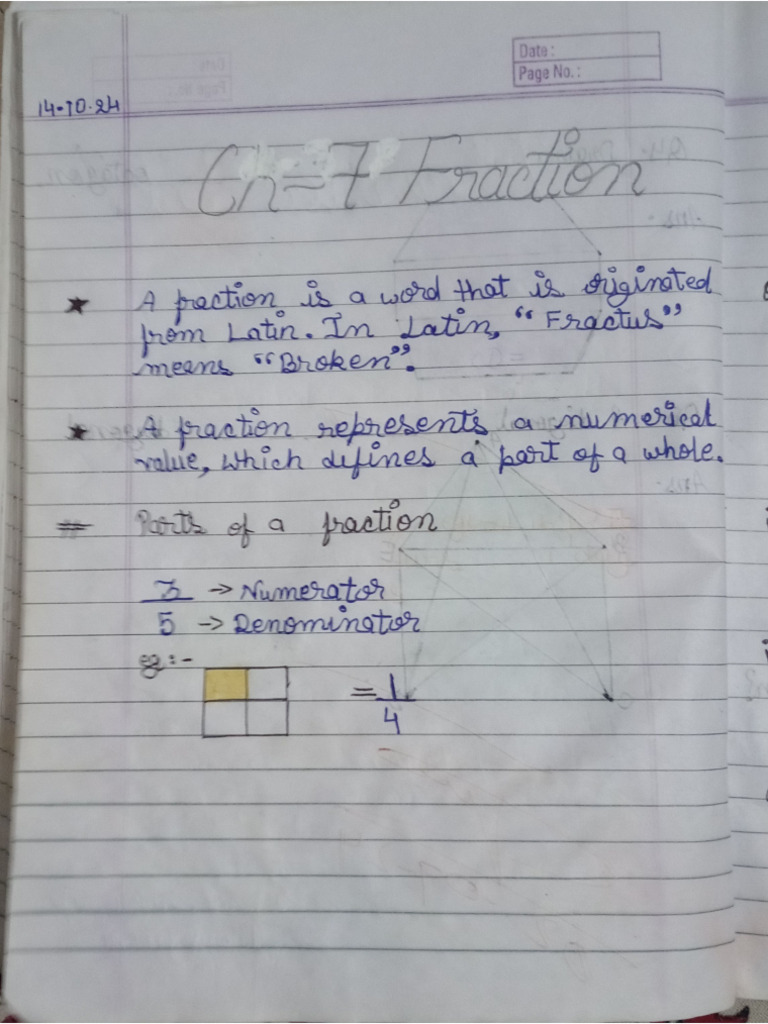 Date :
Page No. :
14-10-24
Ch=7 Fraction
★ A fraction is a word that is originated
from Latin. In Latin, "Fractus"
means "Broken".
★ A fraction represents a numerical
value, which defines a part of a whole.
# Parts of a fraction
3 → Numerator
5 → Denominator
eg :-
= 1
4